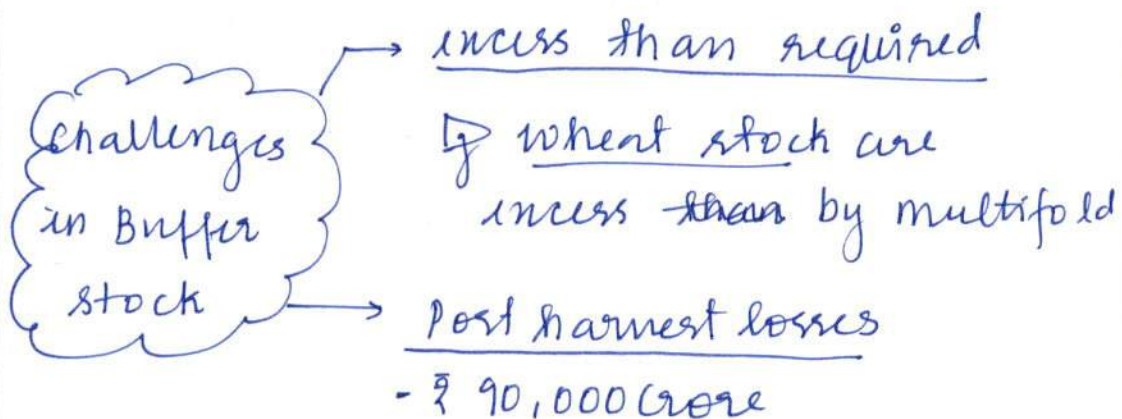 Challenges
in Buffer
stock
→ incess than required
↳ wheat stock are
incess than by multifold
→ Post harvest losses
- ₹ 90,000 Crore